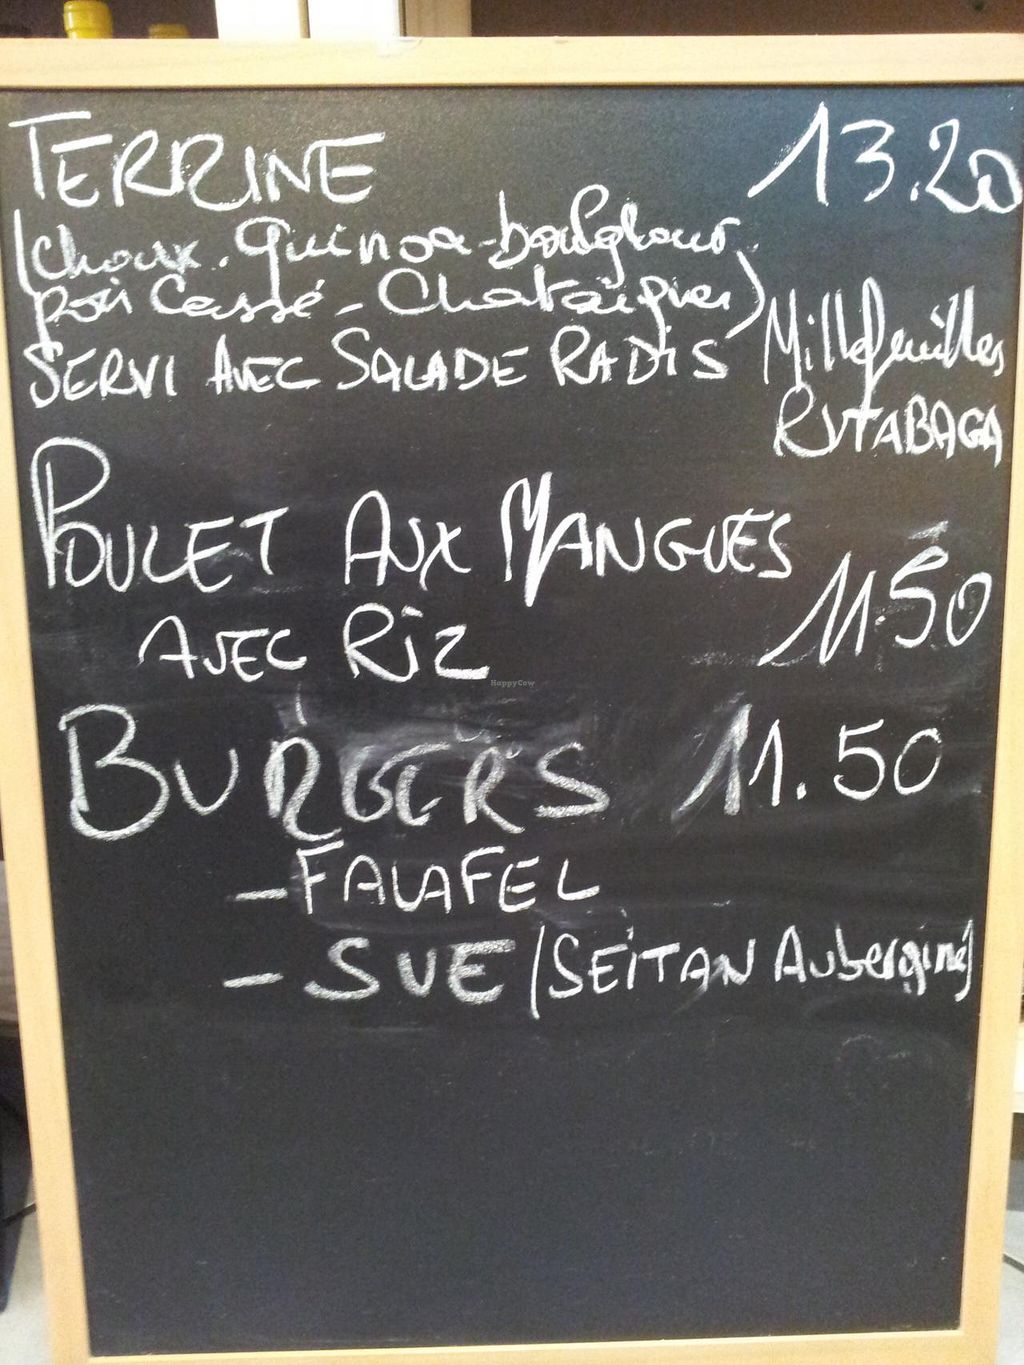 TERRINE 13.20
(choux. Quinoa-boulghour,
pois Cassé - Chataignes)
SERVI AVEC SALADE RADIS Millefeuilles
RUTABAGA
POULET AUX MANGUES
AVEC RIZ 11.50
BURGERS 11.50
- FALAFEL
- SUE (SEITAN Aubergine)
HappyCow